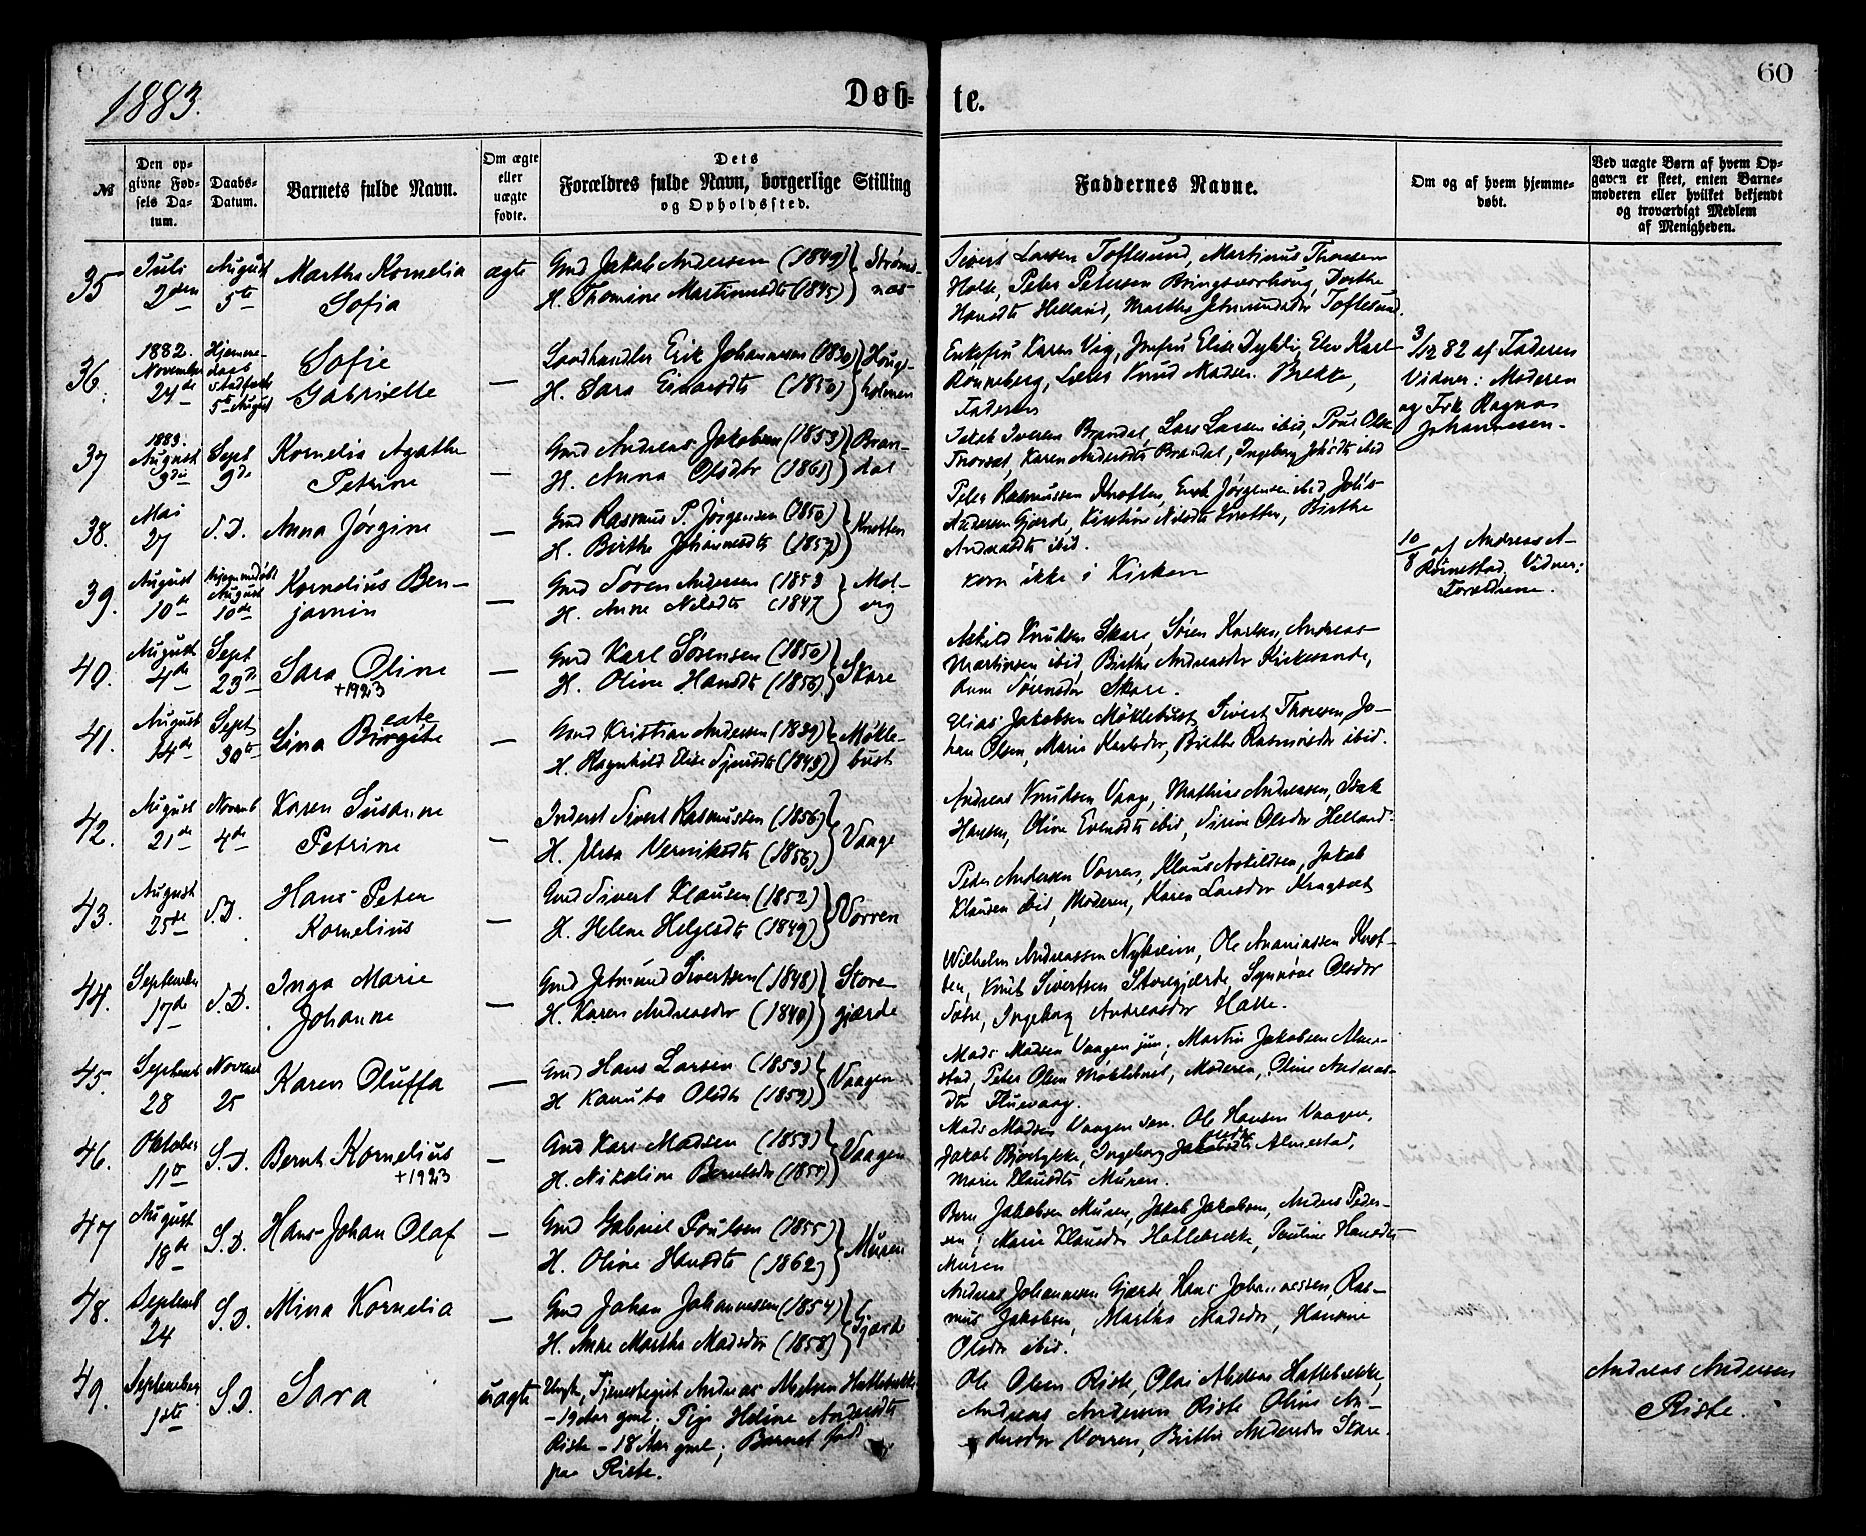 60
1883.
Døb= te.
№
Den op-
givne Fød-
sels Da-
tum.
Daabs-
Datum.
Barnets fulde Navn.
Om ægte
eller
uægte
fødte.
Dets
Forældres fulde Navn, borgerlige Stilling
og Opholdssted.
Faddernes Navne.
Om og af hvem hjemme-
døbt.
Ved uægte Børn af hvem Op-
gaven er skeet, enten Barne-
moderen eller hvilket bekjendt
og troværdigt Medlem
af Menigheden.
35
Juli
2den
August
5te
Marthe Kornelia
Sofia
ægte
Gmd Jakob Andersen (1849)
H. Thomine Martinusdtr (1845)
Strøms-
næs
Sivert Larsen Toftesund, Martinus Thoresen
Holte, Peter Petersen Bringsvorhoug, Dorthe
Hansdtr Helland, Marthe Jetmundsdtr Toftesund.
36.
1882.
November
24de
Hjemme-
daab
Stadfæstet
5te August
Sofie
Gabrielle
—
Landhandler Erik Johannesen (1830)
H. Sara Einarsdtr (1850)
Hougs-
holmen
Enkefru Karen Vig, Jomfru Elise Dybli, Elev Karl
Rønneberg, Lærer Knud Madsen Brekke,
Faderen
3/12 82 af Faderen
Vidner: Moderen
og Frk Ragna
Johannesen.
37
1883.
August
9de
Sept
9de
Kornelia Agathe
Petrine
—
Gmd Andreas Jakobsen (1853)
H. Anna Olsdtr (1861)
Bran-
dal
Jakob Iversen Brandal, Lars Larsen ibid, Poul Olsen
Thorset, Karen Andersdtr Brandal, Ingeborg Johsdtr ibid
38.
Mai
27
S.D.
Anna Jørgine
—
Gmd Rasmus P. Jørgensen (1850)
H. Birthe Johannesdtr (1857)
Knotten
Peter Rasmussen Knotten, Erik Jørgensen ibid, Johs
Andersen Gjærde, Kirstine Nilsdtr Knotten, Birthe
Andreasdtr ibid.
39.
August
10de
hjemmedøbt
August
10de
Kornelius Ben-
jamin
—
Gmd Søren Andersen (1853
H. Anne Nilsdtr (1847)
Mol-
vig
kom ikke i Kirken
10/8 af Andreas A-
Rørnestad. Vidner:
Forældrene.
40.
August
4de
Sept
23de
Sara Oline
+1923
—
Gmd Karl Sørensen (1850)
H. Oline Hansdtr (1856)
Skare
Askild Knudsen Skare, Søren Karlsen, Andreas
Martinsen ibid, Birthe Andreasdtr Kirkesande,
Anne Sørensdtr Skare.
41.
August
14de
Sept
30te
eate
Lina Birgite
—
Gmd Kristian Andersen (1839)
H. Ragnhild Elise Sjursdtr (1843)
Møkle-
bust
Elias Jakobsen Møklebust, Sivert Thoresen, Jo-
han Olsen, Marie Karlsdtr, Birthe Rasmusdtr ibid.
42.
August
21de
Novemb
4de
Karen Susanne
Petrine
—
Inderst Sivert Rasmussen (1856)
H. Mrta Verniksdtr (1856)
Vaage
Andreas Knudsen Vaage, Mathias Andreassen, Isak
Hansen, Oline Evensdtr ibid, Sirine Olsdtr Helland.
43.
August
25de
S.D.
Hans Peter
Kornelius
—
Gmd Sivert Klausen (1852)
H. Helene Helgesdtr (1849)
Vorren
Peder Andersen Vorren, Klaus Askildsen, Jakob
Klausen ibid, Moderen, Karen Larsdtr Kragset
44.
September
17de
S.D.
Inga Marie
Johanne
—
Gmd Jetmund Sivertsen (1848)
H. Karen Andreasdtr (1840)
Store-
gjærde
Wilhelm Andreassen Nykreim, Ole Ananiassen Knot-
ten, Knut Sivertsen Storegjærde, Synnøve Olsdtr
Sætre, Ingeborg Andreasdtr Hatle.
45
Septemb
28
Novemb
25
Karen Oluffa
—
Gmd Hans Larsen (1859)
H Kanuta Olsdtr (1859)
Vaagen
Mads Madsen Vaagen jun, Martin Jakobsen Alme-
stad, Peter Olsen Møklebust, Moderen, Oline Andreas-
dtr Fluevaag.
46.
Oktober
11te
S.D.
Bernt Kornelius
+1923
—
Gmd Karl Madsen (1853)
H. Nikoline Berntsdtr (1855)
Vaagen
Mads Madsen Vaagen sen. Ole Hansen Vaagen,
Jakob Bjørlykke, Ingeborg Jakobsdtr Almestad,
Marie Klausdtr Muren.
47
August
18de
S.D.
Hans Johan Olaf
—
Gmd Gabriel Poulsen (1855)
H. Oline Hansdtr (1862)
Muren
Bern Jakobsen Muren, Jakob Jakobsen, Anders Peder-
sen, Marie Klausdtr Hatlebrekke, Pauline Hansdtr
Muren
48.
Septemb
24
S.D.
Mina Kornelia
—
Gmd Johan Johannesen (1854)
H. Anne Martha Madsdtr (1858)
Gjærde
Andreas Johannesen Gjærde Hans Johannessen, Ras-
mus Jakobsen, Martha Madsdtr, Hansine
Olsdtr ibid.
49.
September
1ste
S.D.
Sara
uægte
Ungk., Tjenestegut Andreas Nielsen Hatlebrekke
—19 Aar gml. Pige Heline Andersdtr
Riste — 18 Aar gml; Barnet født
paa Riste.
Ole Olsen Riste, Olai Nielsen Hatlebrekke,
Andreas Andersen Riste Oline An-
dersdtr Vorren, Birthe Andersdtr Skare.
Andreas Andersen
Riste.